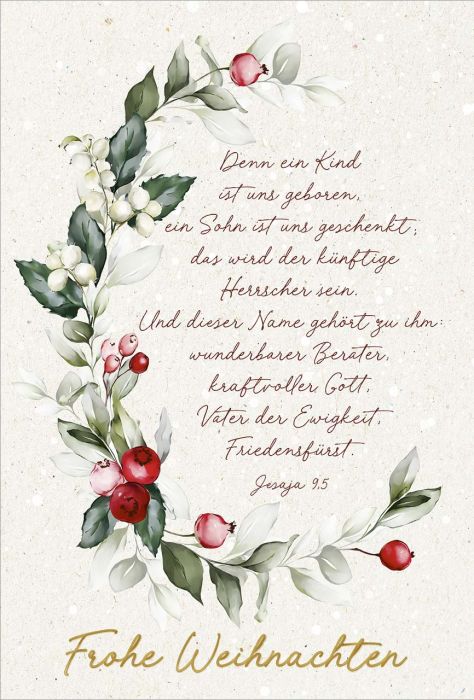 Denn ein Kind
ist uns geboren,
ein Sohn ist uns geschenkt;
das wird der künftige
Herrscher sein.
Und dieser Name gehört zu ihm:
wunderbarer Berater,
kraftvoller Gott,
Vater der Ewigkeit,
Friedensfürst.
Jesaja 9,5
Frohe Weihnachten